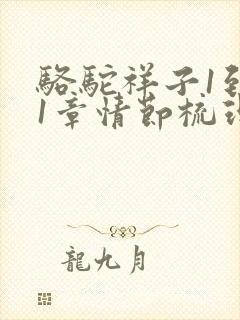 駱駝祥子1到
1章情節梳理
龍九月